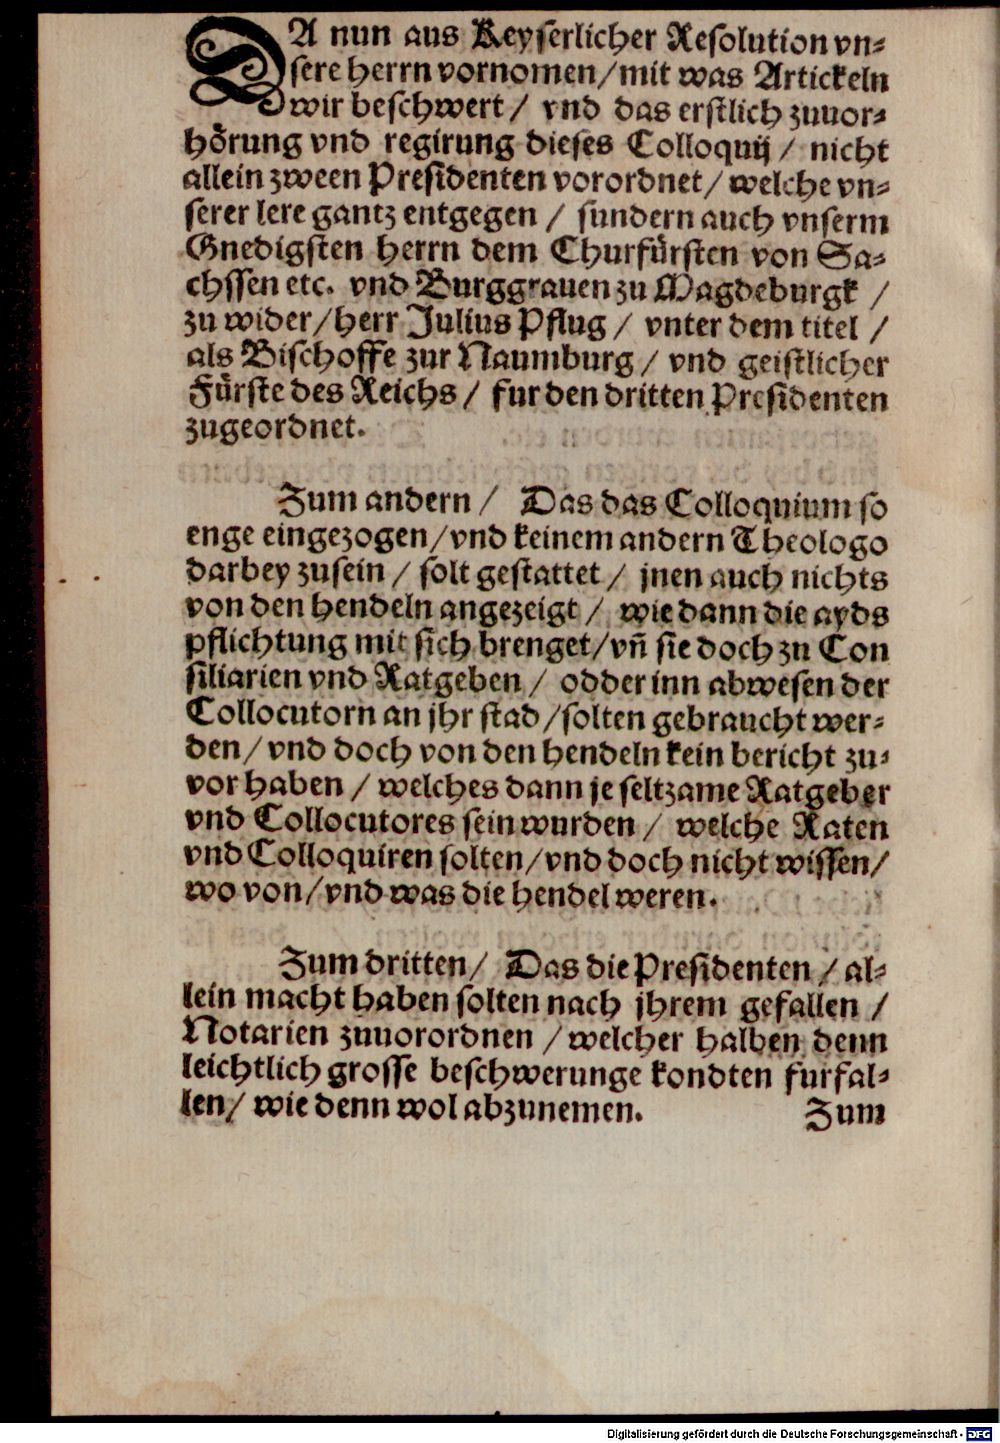 DA nun aus Keyserlicher Resolution vn-
sere herrn vornomen/mit was Artickeln
wir beschwert/ vnd das erstlich zuuor-
hörung vnd regirung dieses Colloquij/ nicht
allein zween Presidenten vorordnet/ welche vn-
serer lere gantz entgegen / sundern auch vnserm
Gnedigsten herrn dem Churfürsten von Sa-
chssen etc. vnd Burggrauen zu Magdeburgk /
zu wider/herr Julius Pflug/ vnter dem titel /
als Bischoffe zur Naumburg/ vnd geistlicher
Fürste des Reichs/ fur den dritten Presidenten
zugeordnet.
Zum andern/ Das das Colloquium so
enge eingezogen/vnd keinem andern Theologo
darbey zusein/ solt gestattet/ jnen auch nichts
von den hendeln angezeigt/ wie dann die ayds
pflichtung mit sich brenget/vñ sie doch zu Con
siliarien vnd Ratgeben/ odder inn abwesen der
Collocutorn an jhr stad/solten gebraucht wer-
den/vnd doch von den hendeln kein bericht zu-
vor haben/ welches dann je seltzame Ratgeber
vnd Collocutores sein wurden/ welche Raten
vnd Colloquiren solten/vnd doch nicht wissen/
wo von/vnd was die hendel weren.
Zum dritten/ Das die Presidenten/ al-
lein macht haben solten nach jhrem gefallen /
Notarien zuuorordnen /welcher halben denn
leichtlich grosse beschwerunge kondten furfal-
len/ wie denn wol abzunemen. Zum
Digitalisierung gefördert durch die Deutsche Forschungsgemeinschaft - DFG